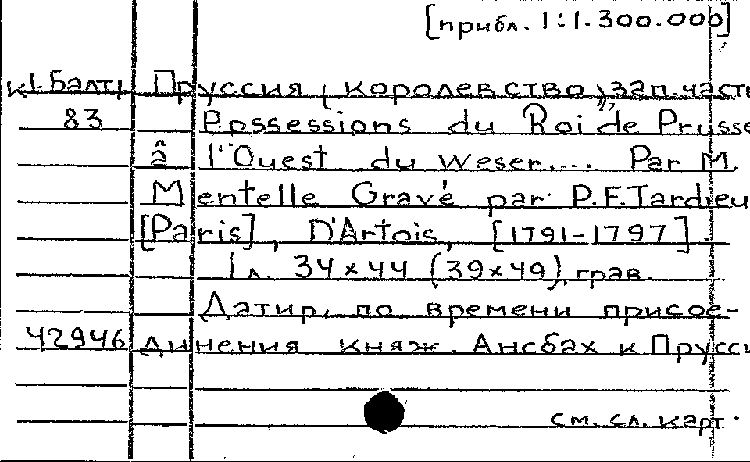 [прибл. 1:1.300.000]
К1 Балт. Пруссия (королевство), зап. часть
83 Possessions du Roi de Prusse
à l'Ouest du Weser.... Par M.
Mentelle Gravé par P.F. Tardieu
[Paris], D'Artois, [1791-1797].
1 л. 34×44 (39×49), грав.
Датир. по времени присое-
42946 динения княж. Ансбах к Прусси
см. сл. карт.